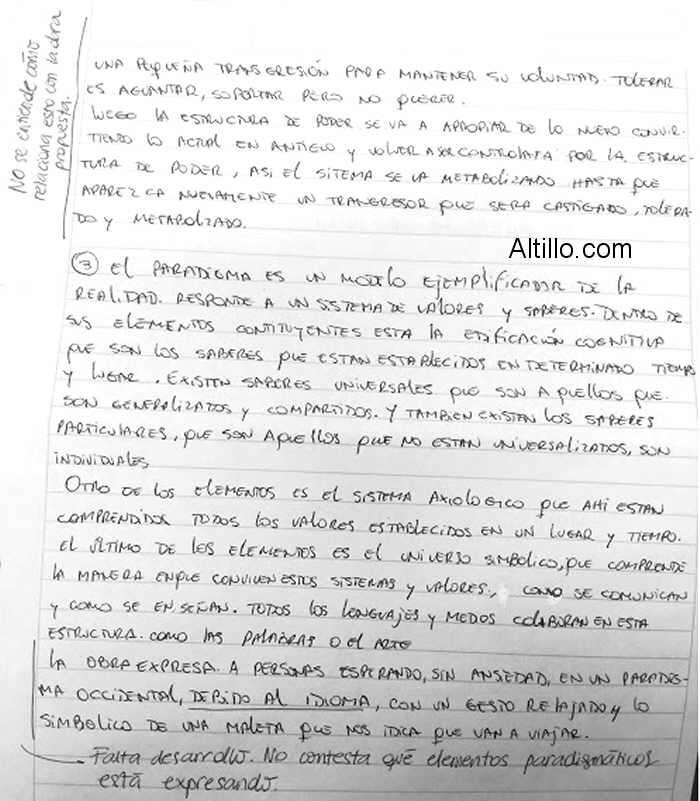 No se entiende cómo
relaciona esto con la obra
propuesta.
UNA PEQUEÑA TRANSGRESIÓN PARA MANTENER SU VOLUNTAD. TOLERAR
ES AGUANTAR, SOPORTAR PERO NO QUERER.
LUEGO LA ESTRUCTURA DE PODER SE VA A APROPIAR DE LO NUEVO CONVIR-
TIENDO LO ACTUAL EN ANTIGUO Y VOLVER A SER CONTROLATA POR LA ESTRUC-
TURA DE PODER, ASI EL SITEMA SE VA METABOLIZANDO HASTA QUE
APAREZCA NUEVAMENTE UN TRANGRESOR QUE SERA CASTIGADO, TOLERA-
DO Y METABOLIZADO.
Altillo.com
③ EL PARADIGMA ES UN MODELO EJEMPLIFICADOR DE LA
REALIDAD. RESPONDE A UN SISTEMA DE VALORES Y SABERES. DENTRO DE
SUS ELEMENTOS CONTITUYENTES ESTA LA EDIFICACIÓN COGNITIVA
QUE SON LOS SABERES QUE ESTAN ESTABLECIDOS EN DETERMINADO TIEMPO
Y LUGAR. EXISTEN SABERES UNIVERSALES QUE SON AQUELLOS QUE
SON GENERALIZADOS Y COMPARTIDOS. Y TAMBIEN EXISTEN LOS SABERES
PARTICULARES, QUE SON AQUELLOS QUE NO ESTAN UNIVERSALIZADOS, SON
INDIVIDUALES
OTRO DE LOS ELEMENTOS ES EL SISTEMA AXIOLOGICO QUE AHI ESTAN
COMPRENDIDOS TODOS LOS VALORES ESTABLECIDOS EN UN LUGAR Y TIEMPO.
EL ÚLTIMO DE LES ELEMENTOS ES EL UNIVERSO SIMBOLICO, QUE COMPRENDE
LA MANERA EN QUE CONVIVEN ESTOS SISTEMAS Y VALORES, COMO SE COMUNICAN
Y COMO SE ENSEÑAN. TODOS LOS LENGUAJES Y MEDOS COLABORAN EN ESTA
ESTRUCTURA. COMO LAS PALABRAS O EL ARTE
LA OBRA EXPRESA A PERSONAS ESPERANDO, SIN ANSIEDAD, EN UN PARADIG-
MA OCCIDENTAL, DEBIDO AL IDIOMA, CON UN GESTO RELAJADO Y LO
SIMBOLICO DE UNA MALETA QUE NOS IDICA QUE VAN A VIAJAR.
Falta desarrollo. No contesta qué elementos paradigmáticos
está expresando.